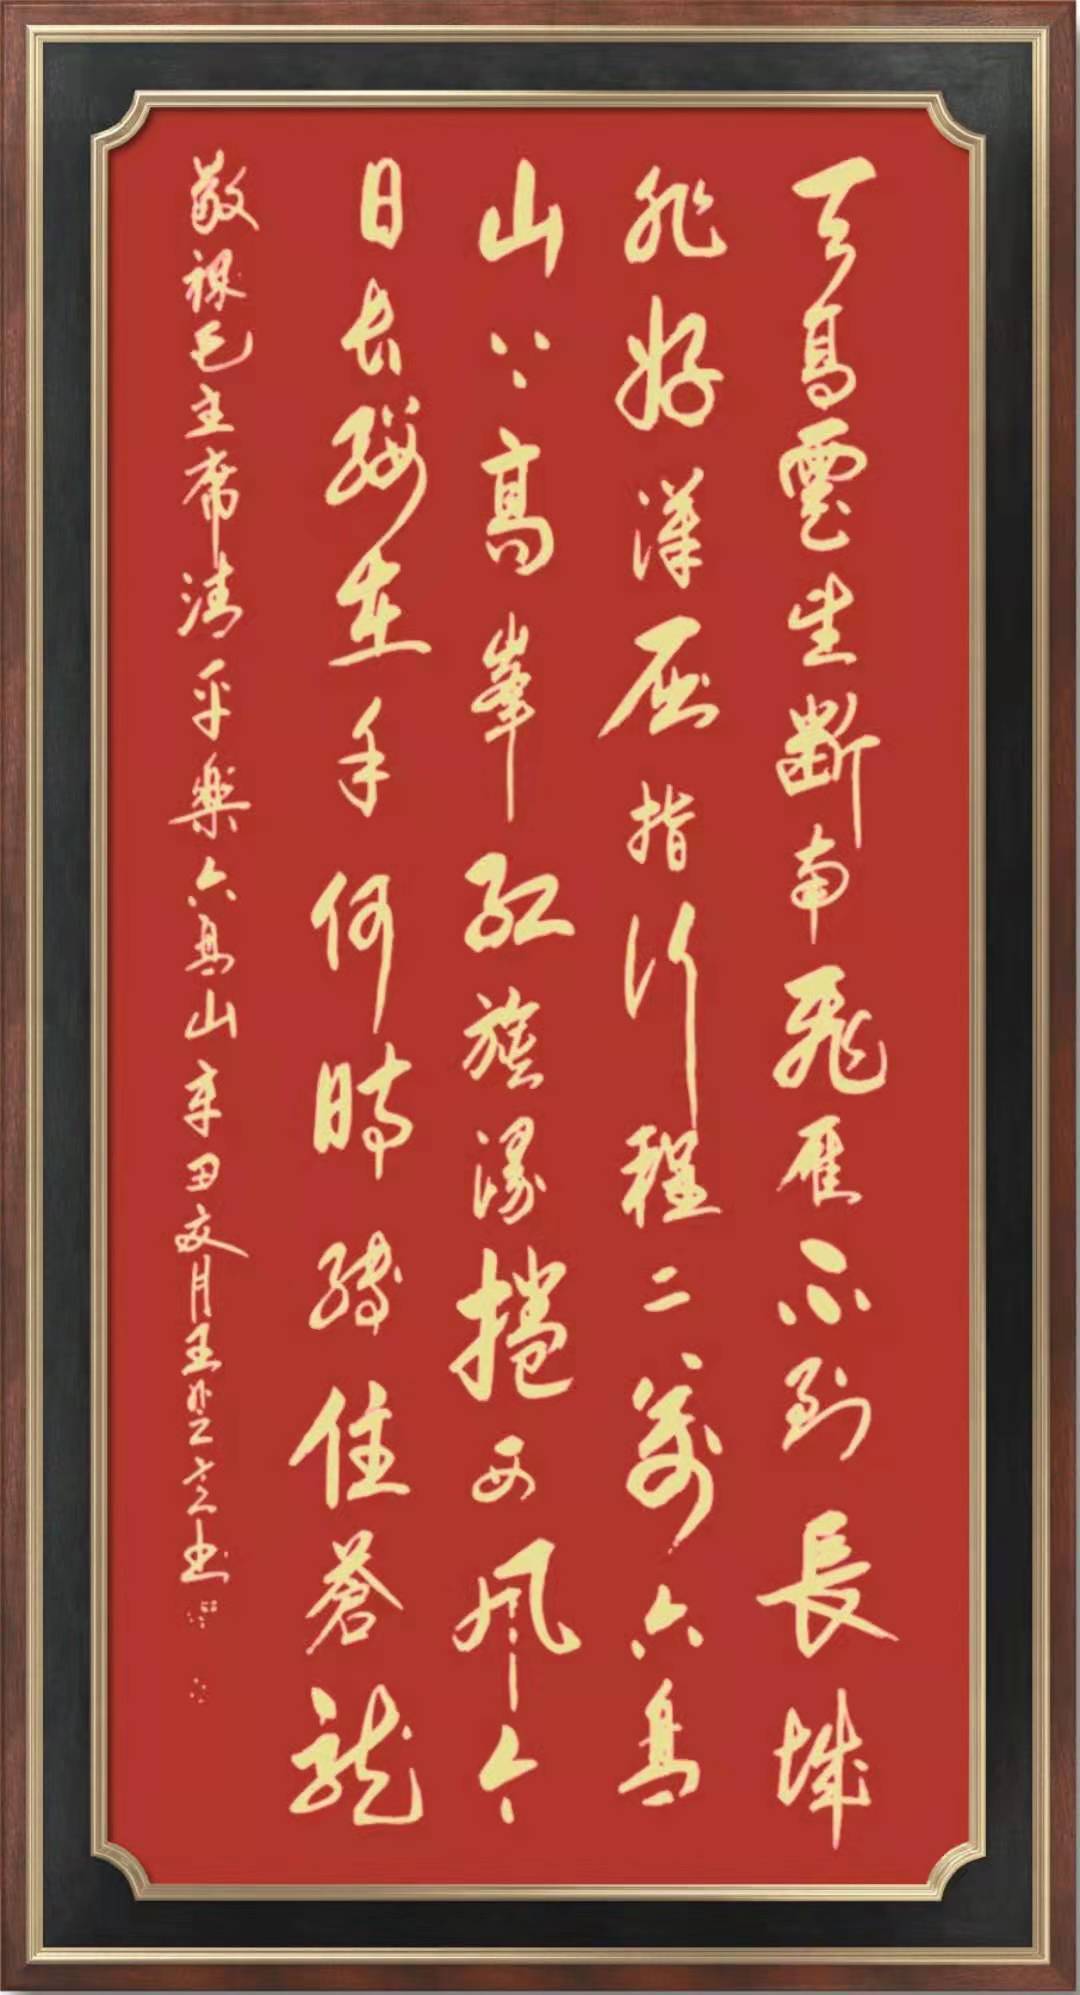 天高雲生断南飛雁不到長城
非好漢屈指行程二萬六盤
山高峯紅旗漫捲西風今
日長纓在手何時縛住蒼龍
敬祿毛主席清平樂六盤山辛月王书